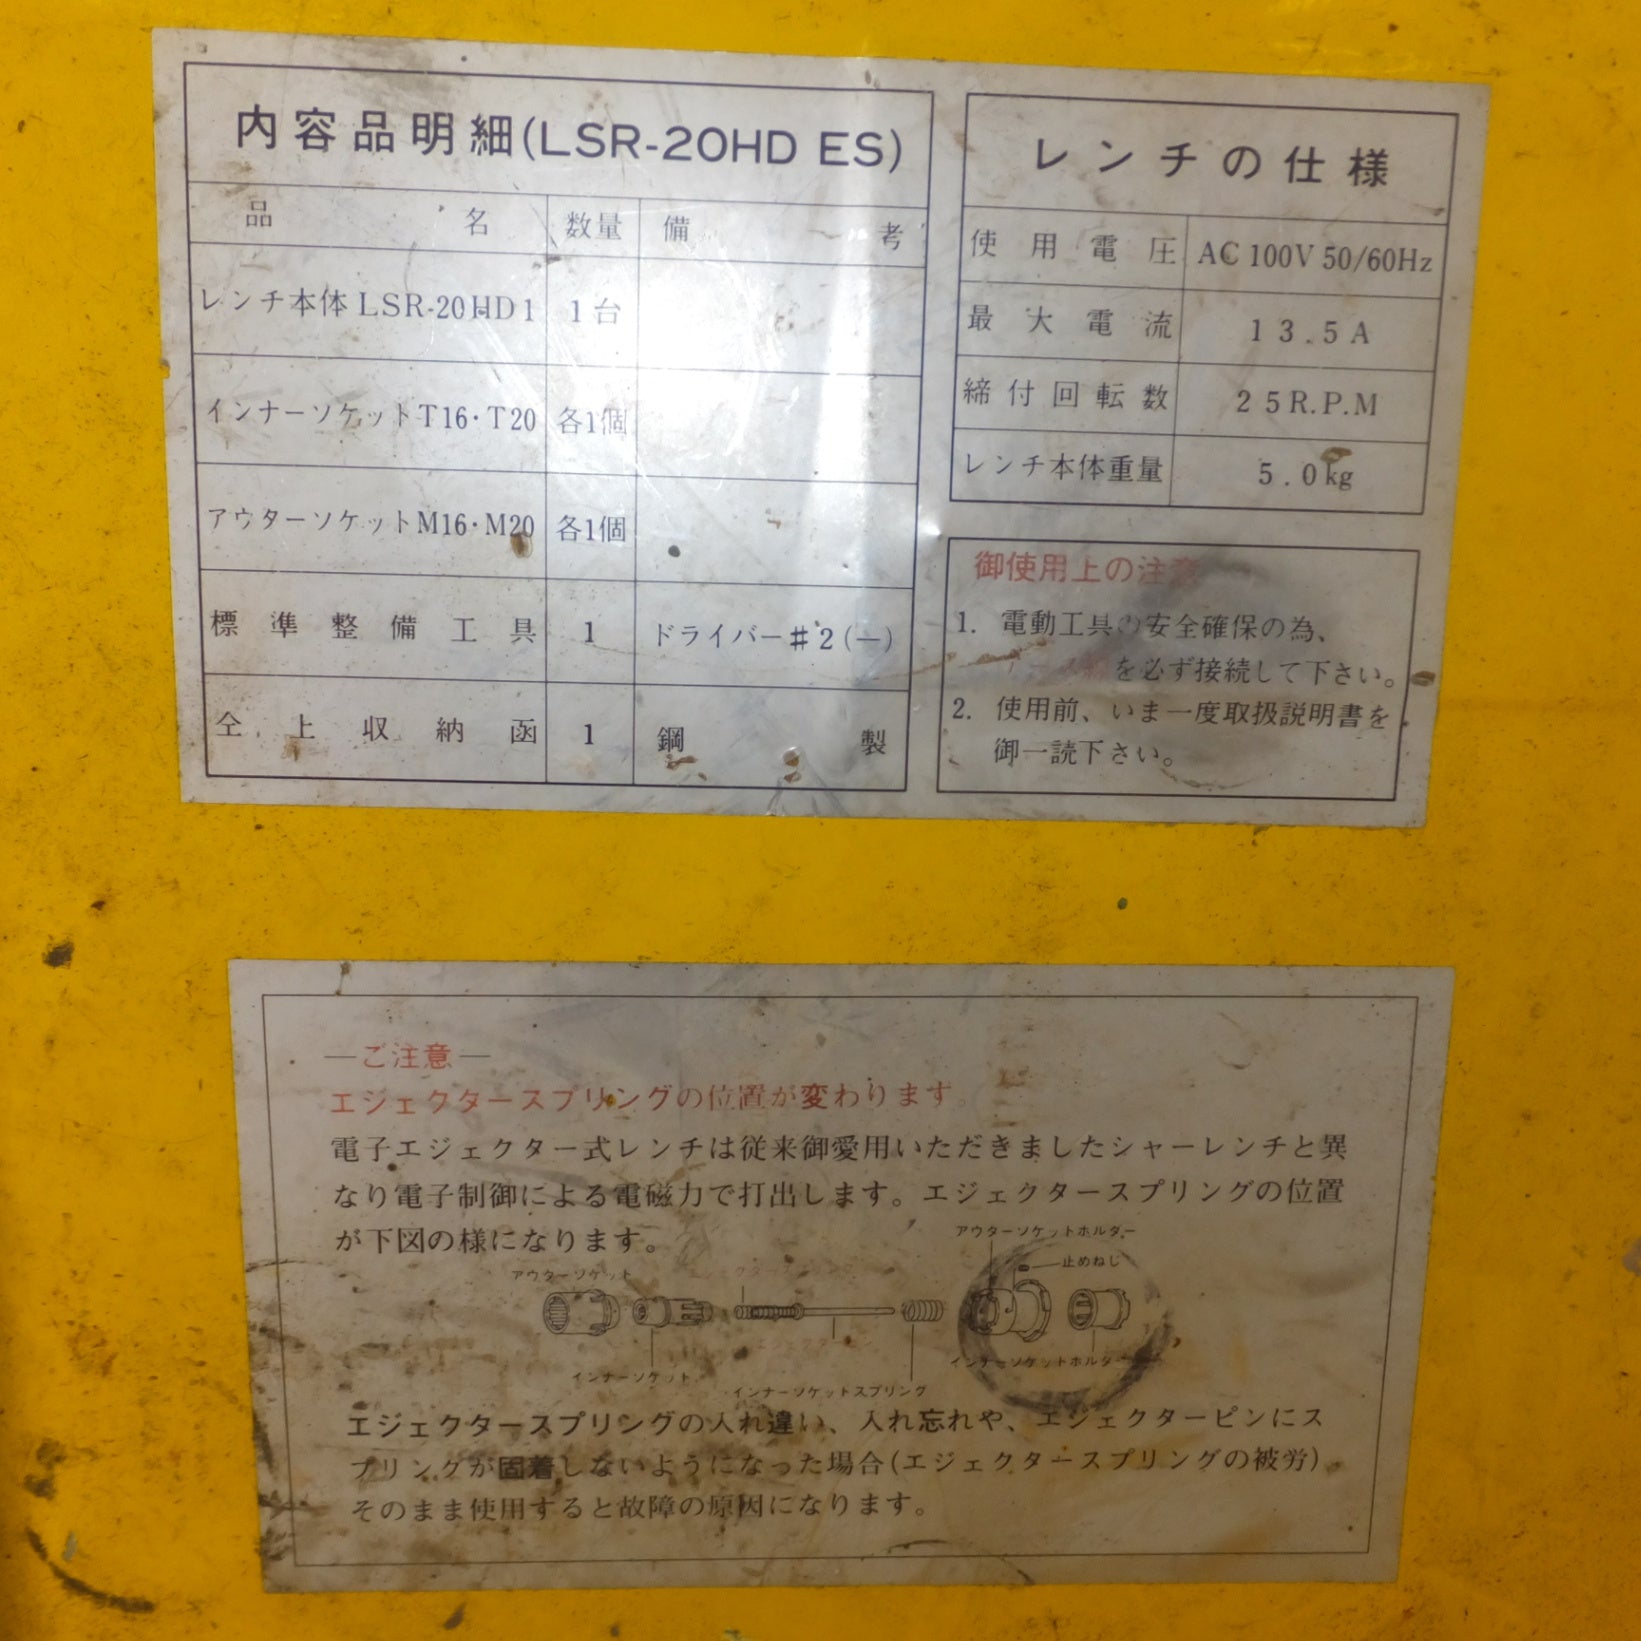 内容品明細(LSR-20HD ES)
品名 数量 備考
レンチ本体 LSR-20HD1 1台
インナーソケットT16・T20 各1個
アウターソケットM16・M20 各1個
標準整備工具 1 ドライバー#2(一)
仝上収納函 1 鋼製
レンチの仕様
使用電圧 AC 100V 50/60Hz
最大電流 13.5A
締付回転数 25R.P.M
レンチ本体重量 5.0kg
御使用上の注意
1. 電動工具の安全確保の為、
を必ず接続して下さい。
2. 使用前、いま一度取扱説明書を
御一読下さい。
―ご注意―
エジェクタースプリングの位置が変わります。
電子エジェクター式レンチは従来御愛用いただきましたシャーレンチと異
なり電子制御による電磁力で打出します。エジェクタースプリングの位置
が下図の様になります。
アウターソケットホルダー
止めねじ
アウターソケット
エジェクタースプリング
エジェクターピン
インナーソケットホルダー
インナーソケット
インナーソケットスプリング
エジェクタースプリングの入れ違い、入れ忘れや、エジェクターピンにス
プリングが固着しないようになった場合(エジェクタースプリングの被労)。
そのまま使用すると故障の原因になります。